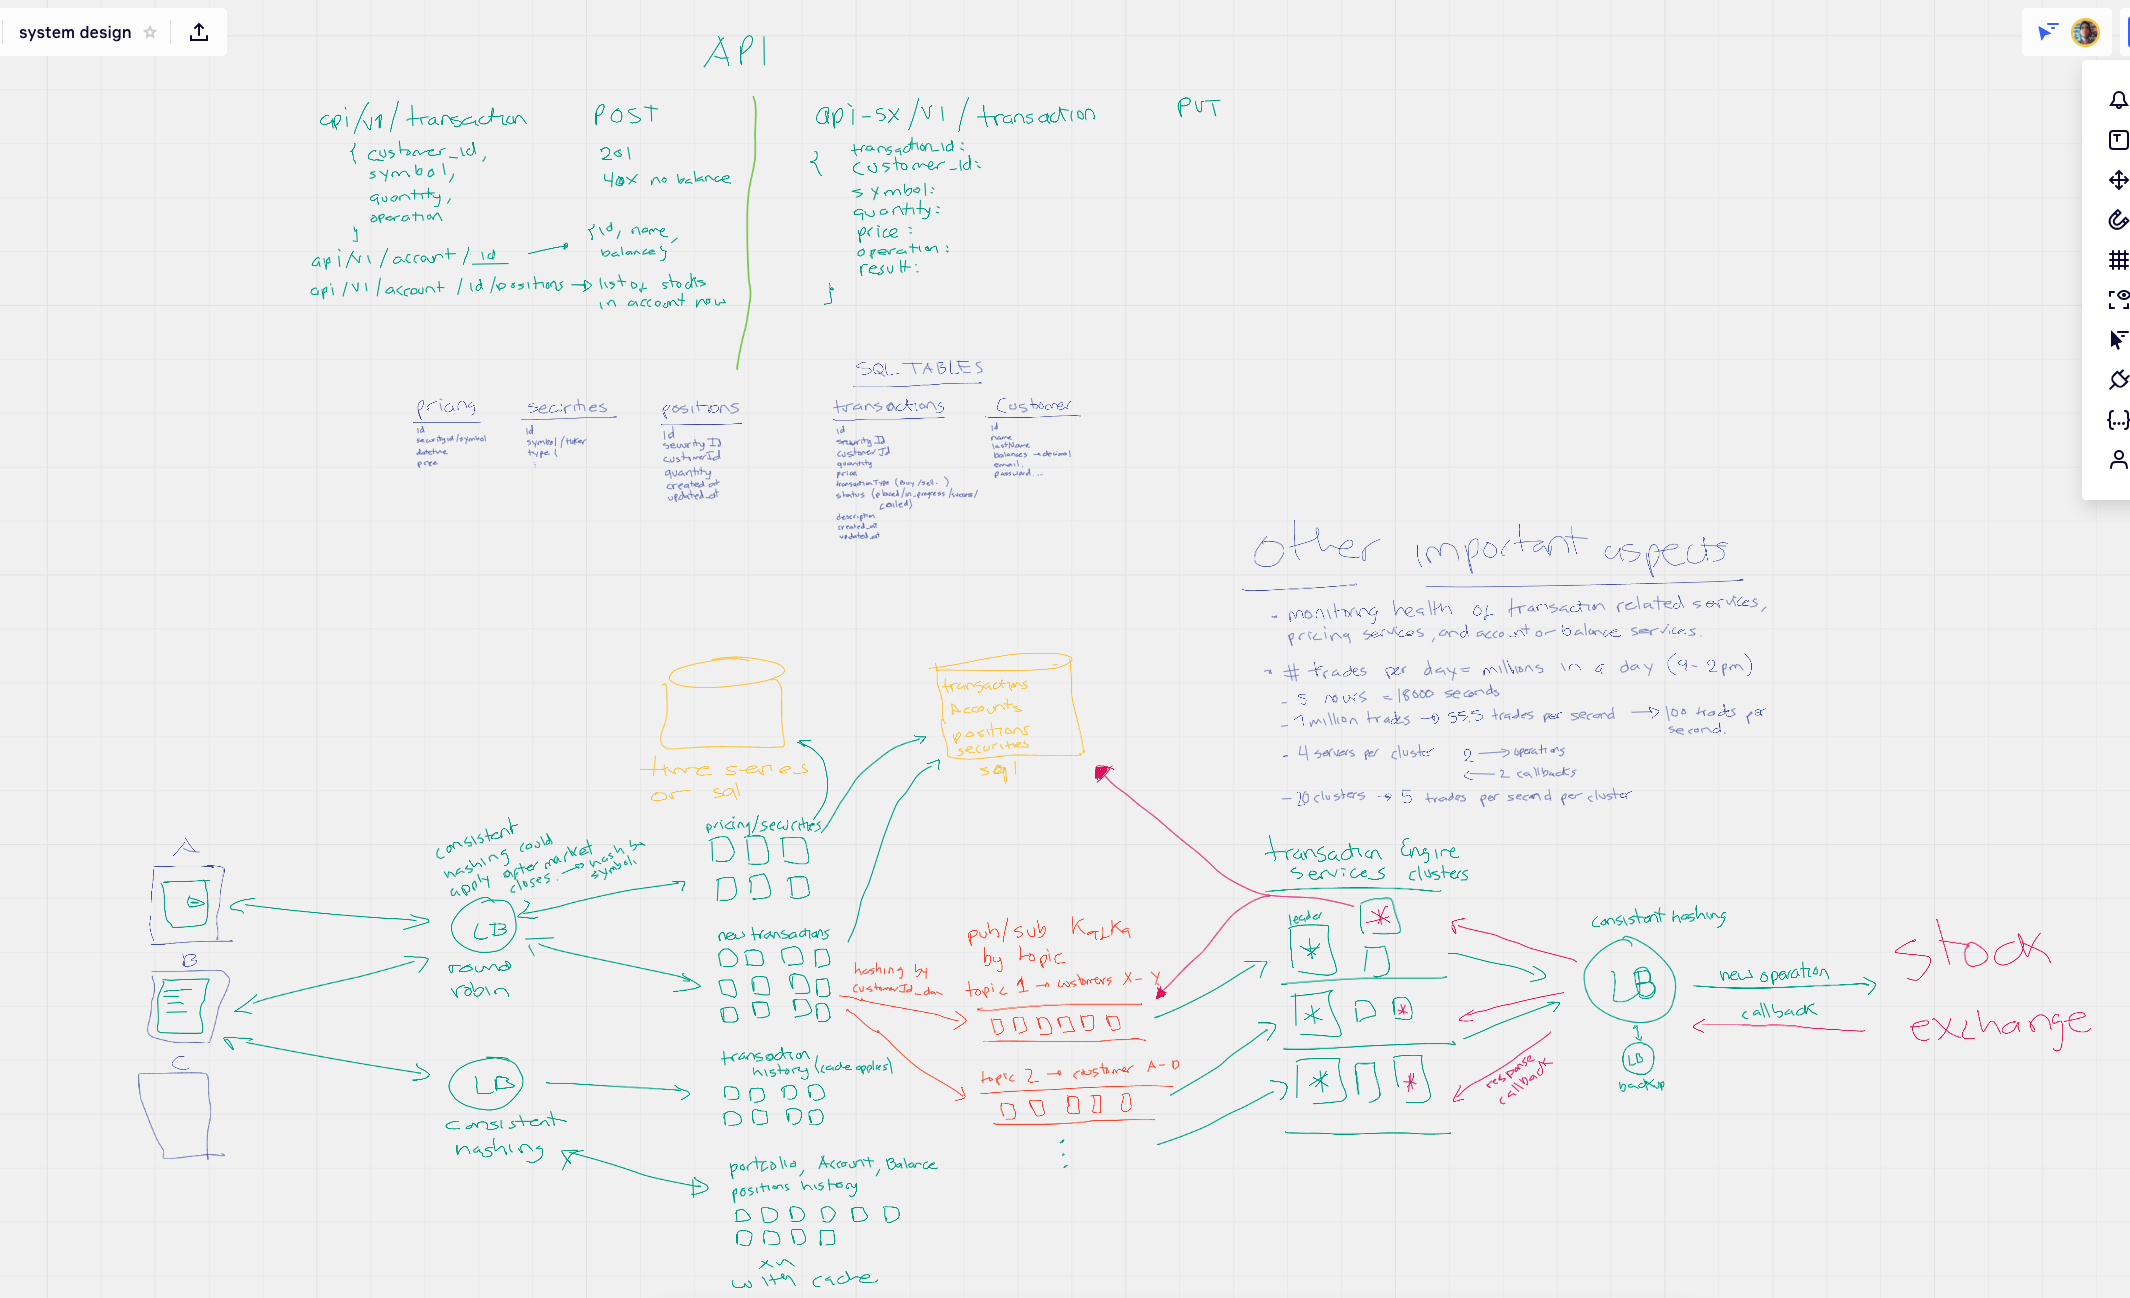 system design
API
api/v1/transaction
POST
{ customer_id,
symbol,
quantity,
operation
}
201
40x no balance
api/v1/account/id
{id, name,
balance}
api/v1/account/id/positions
list of stocks
in account now
api-sx/v1/transaction
PUT
{
transaction_id:
customer_id:
symbol:
quantity:
price:
operation:
result:
}
SQL TABLES
pricing
id
securityid/symbol
datetime
price
securities
id
symbol/ticker
type
positions
id
security ID
customerId
quantity
created_at
updated_at
transactions
id
security ID
customer Id
quantity
price
transactionType (Buy/sell..)
status (placed/in_progress/success/
failed)
description
created_at
updated_at
Customer
id
name
lastName
balances → decimal
email
password...
Other important aspects
- monitoring health of transaction related services,
pricing services, and account or balance services.
- # trades per day = millions in a day (9-2pm)
- 5 hours = 18000 seconds
- 1 million trades → 55.5 trades per second → 100 trades per
second.
- 4 servers per cluster 2 → operations
← 2 callbacks
- 20 clusters → 5 trades per second per cluster
time series
or sql
transactions
Accounts
positions
securities
sql
A
B
C
consistent
hashing could
apply after market
closes. → hash by
symbol.
LB
round
robin
LB
consistent
hashing
pricing/securities
new transactions
hashing by
transaction
history (cache applies)
portfolio, Account, Balance
positions history
xn
with cache
pub/sub Kafka
by topic
topic 1 → customers X-Y
topic 2 → customer A-D
transaction Engine
services clusters
leader
response
callback
consistent hashing
LB
LB
backup
new operation
callback
stock
exchange